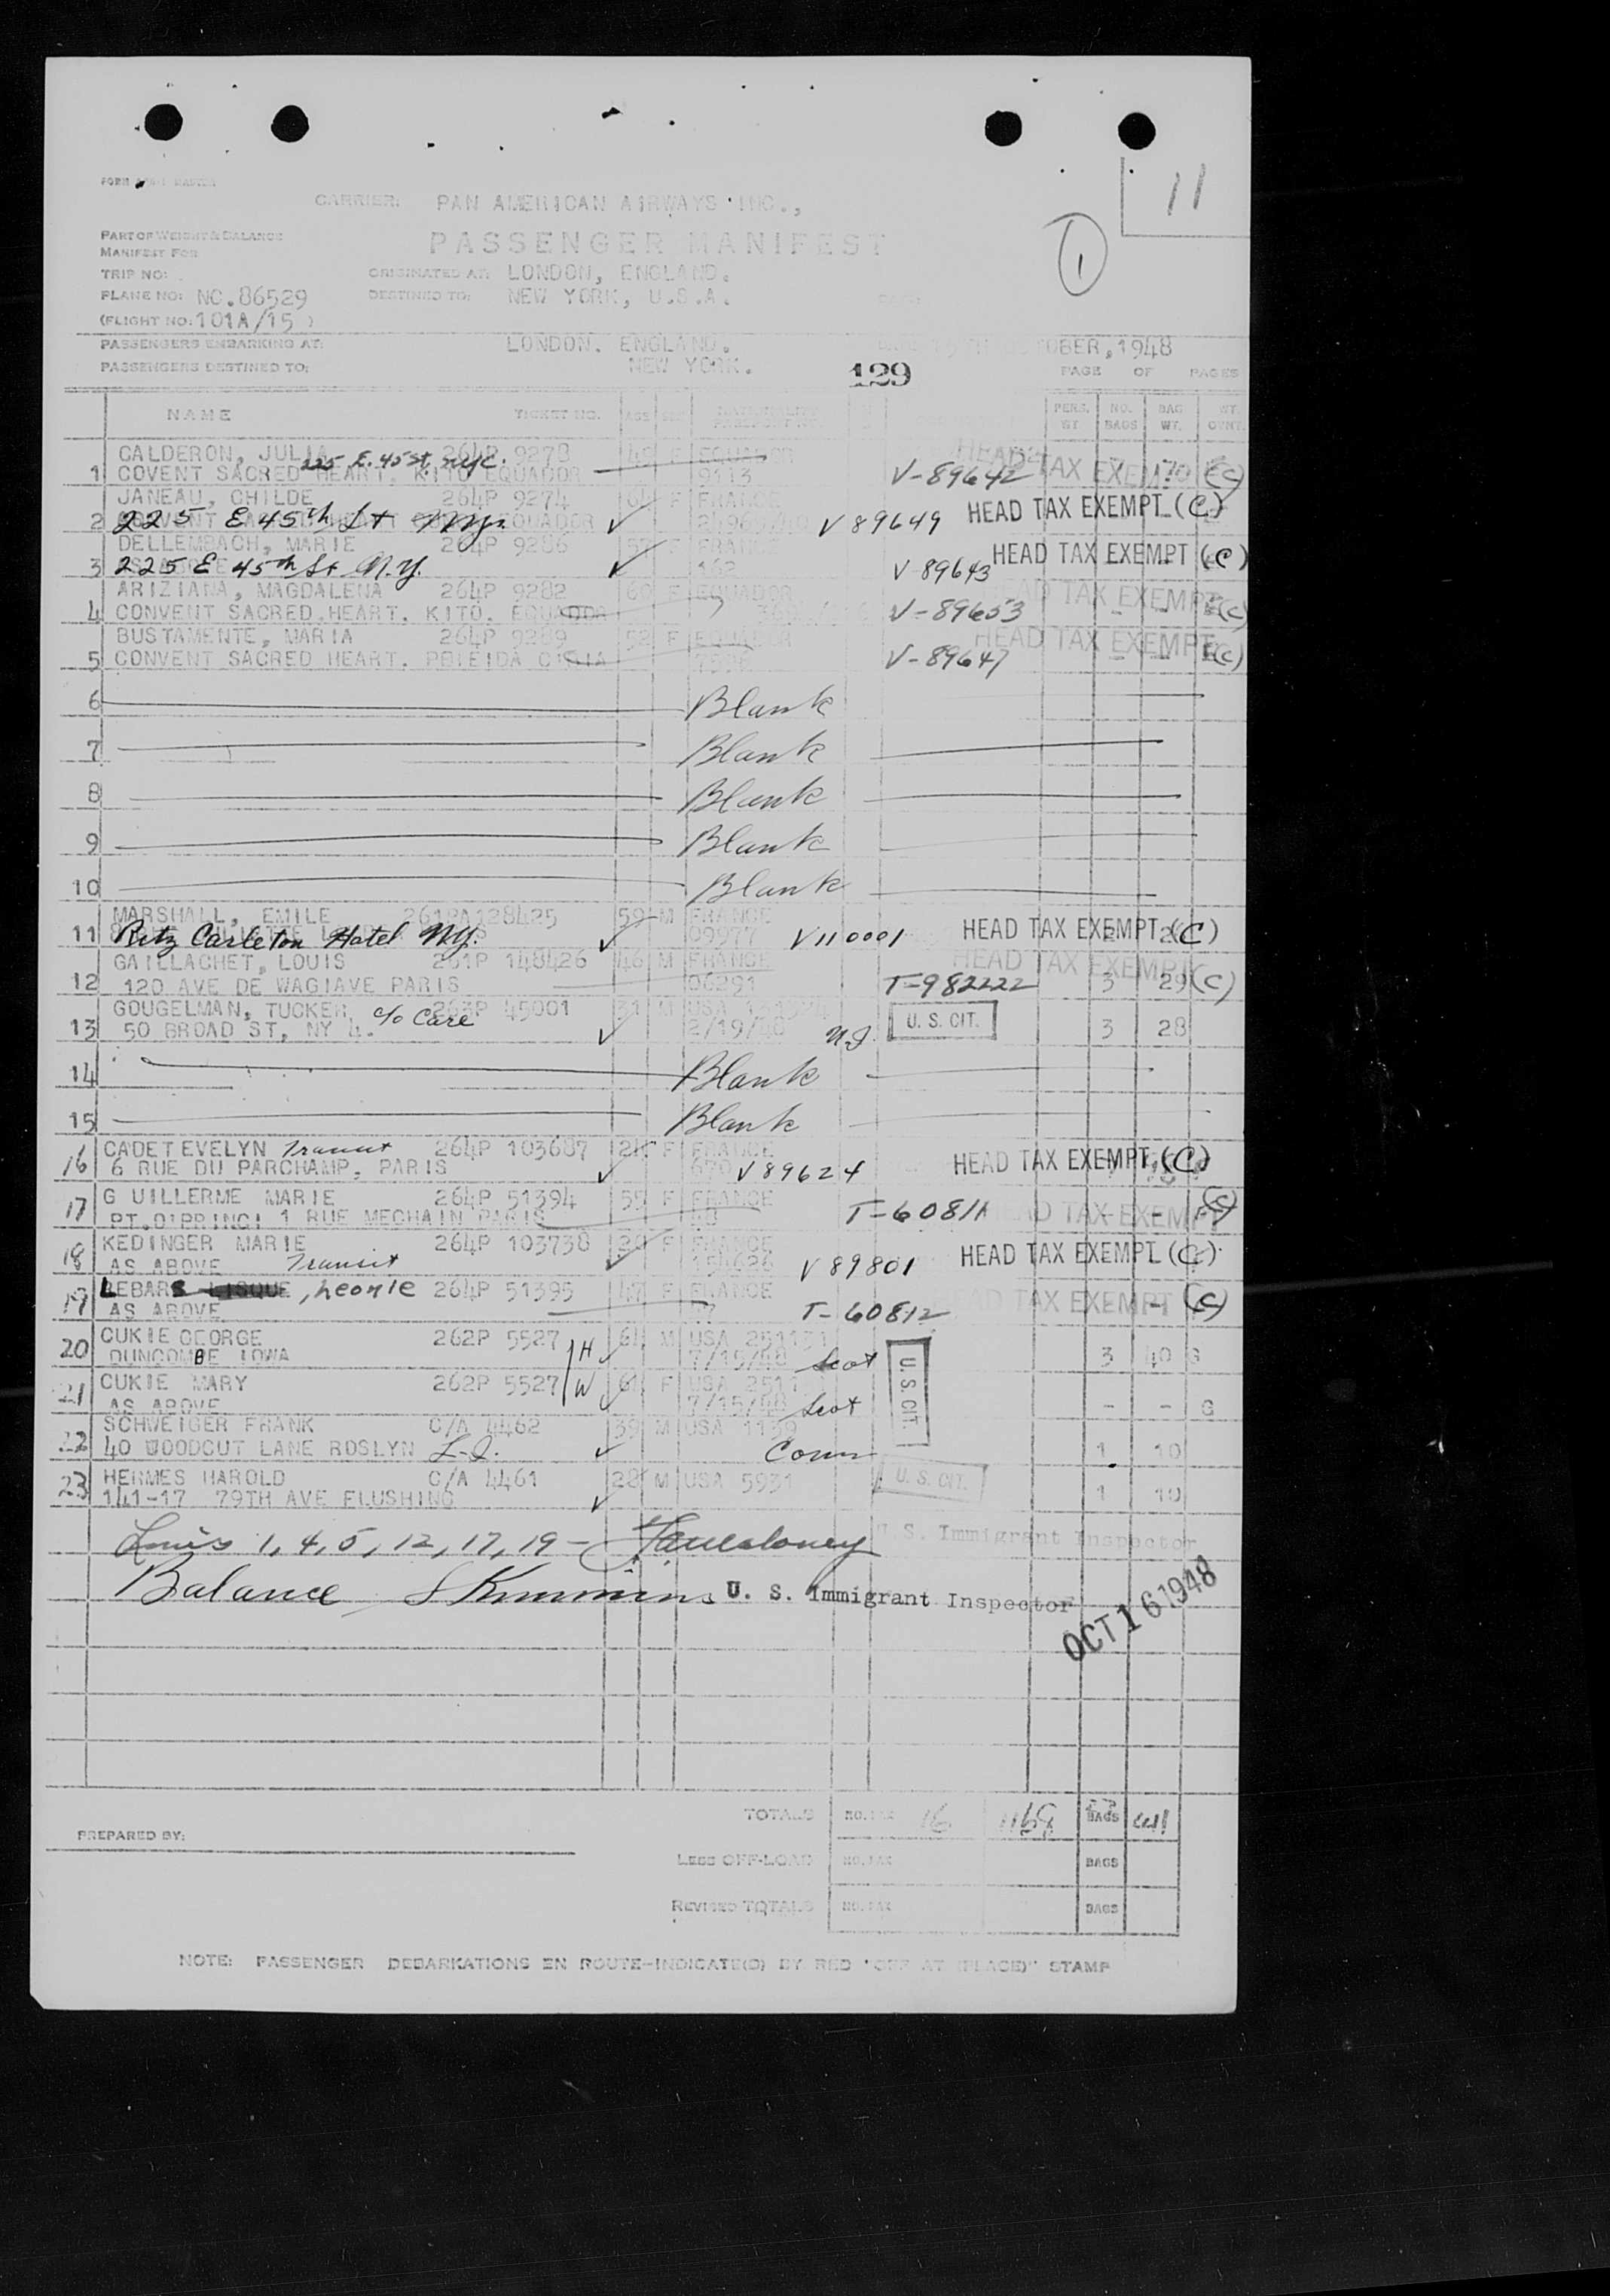 11
CARRIER: PAN AMERICAN AIRWAYS INC.,
PART OF WEIGHT & BALANCE
PASSENGER MANIFEST
1
MANIFEST FOR
TRIP NO:
ORIGINATED AT: LONDON, ENGLAND.
PLANE NO: NC.86529
DESTINED TO: NEW YORK, U.S.A.
(FLIGHT NO: 101A/15 )
PASSENGERS EMBARKING AT: LONDON. ENGLAND. OCTOBER, 1948
PASSENGERS DESTINED TO: NEW YORK. 129 PAGE OF PAGES
NAME TICKET NO. AGE SEX PERS. WT NO. BAGS BAG WT. WT. CTNT.
CALDERON, JULIA 264P 9278 F EQUADOR
225 E. 45 st NYC.
1 COVENT SACRED HEART. KITO EQUADOR 9113 V-89642 HEAD TAX EXEMPT (C)
JANEAU, CHILDE 264P 9274 F FRANCE
2 225 E 45th St EQUADOR V 89649 HEAD TAX EXEMPT (C)
DELLEMBACH, MARIE 264P 9286 F FRANCE
3 225 E 45th St N.Y. V-89643 HEAD TAX EXEMPT (C)
ARIZIANA, MAGDALENA 264P 9282 F EQUADOR
4 CONVENT SACRED HEART. KITO. EQUADOR V-89653 HEAD TAX EXEMPT (C)
BUSTAMENTE, MARIA 264P 9289 52 F EQUADOR
5 CONVENT SACRED HEART. V-89647 HEAD TAX EXEMPT (C)
6 Blank
7 Blank
8 Blank
9 Blank
10 Blank
MARSHALL, EMILE 261PA128425 59 M FRANCE
11 Ritz Carleton Hotel NY. 09977 V110001 HEAD TAX EXEMPT (C)
GAILLACHET, LOUIS 261P 148426 46 M FRANCE
12 120 AVE DE WAGIAVE PARIS 06291 T-982222 HEAD TAX EXEMPT 3 29 (C)
GOUGELMAN, TUCKER 263P 45001 31 M USA
c/o Care
13 50 BROAD ST, NY 4. 2/19/46 U. S. CIT. 3 28
14 Blank
15 Blank
16 CADET EVELYN Transit 264P 103687 F FRANCE
6 RUE DU PARCHAMP, PARIS V 89624 HEAD TAX EXEMPT (C)
17 G UILLERME MARIE 264P 51394 55 F FRANCE
1 RUE MECHAIN PARIS HEAD TAX EXEMPT (C)
18 KEDINGER MARIE 264P 103738 F FRANCE
AS ABOVE Transit V 89801 HEAD TAX EXEMPT (C)
19 LEBARS LISQUE, Leonie 264P 51395 47 F FRANCE
AS ABOVE T-60812 HEAD TAX EXEMPT (C)
20 CUKIE GEORGE 262P 5527 H M USA
DUNCOMBE IOWA 7/15/48 Scot U.S. CIT. 3 40 G
21 CUKIE MARY 262P 5527 W F USA
AS ABOVE 7/15/48 Scot - - G
22 SCHWEIGER FRANK C/A 4462 39 M USA 1139
40 WOODCUT LANE ROSLYN L.I. Conn 1 10
23 HERMES HAROLD C/A 4461 28 M USA 5931 U. S. CIT.
141-17 79TH AVE FLUSHING 1 10
Lines 1, 4, 5, 12, 17, 19 - U.S. Immigrant Inspector
Balance U. S. Immigrant Inspector
OCT 16 1948
TOTALS NO. PAX 16 1168 BAGS
PREPARED BY:
LESS OFF-LOAD NO. PAX BAGS
REVISED TOTALS NO. PAX BAGS
NOTE: PASSENGER DEBARKATIONS EN ROUTE-INDICATE(D) BY RED "OFF AT (PLACE)" STAMP